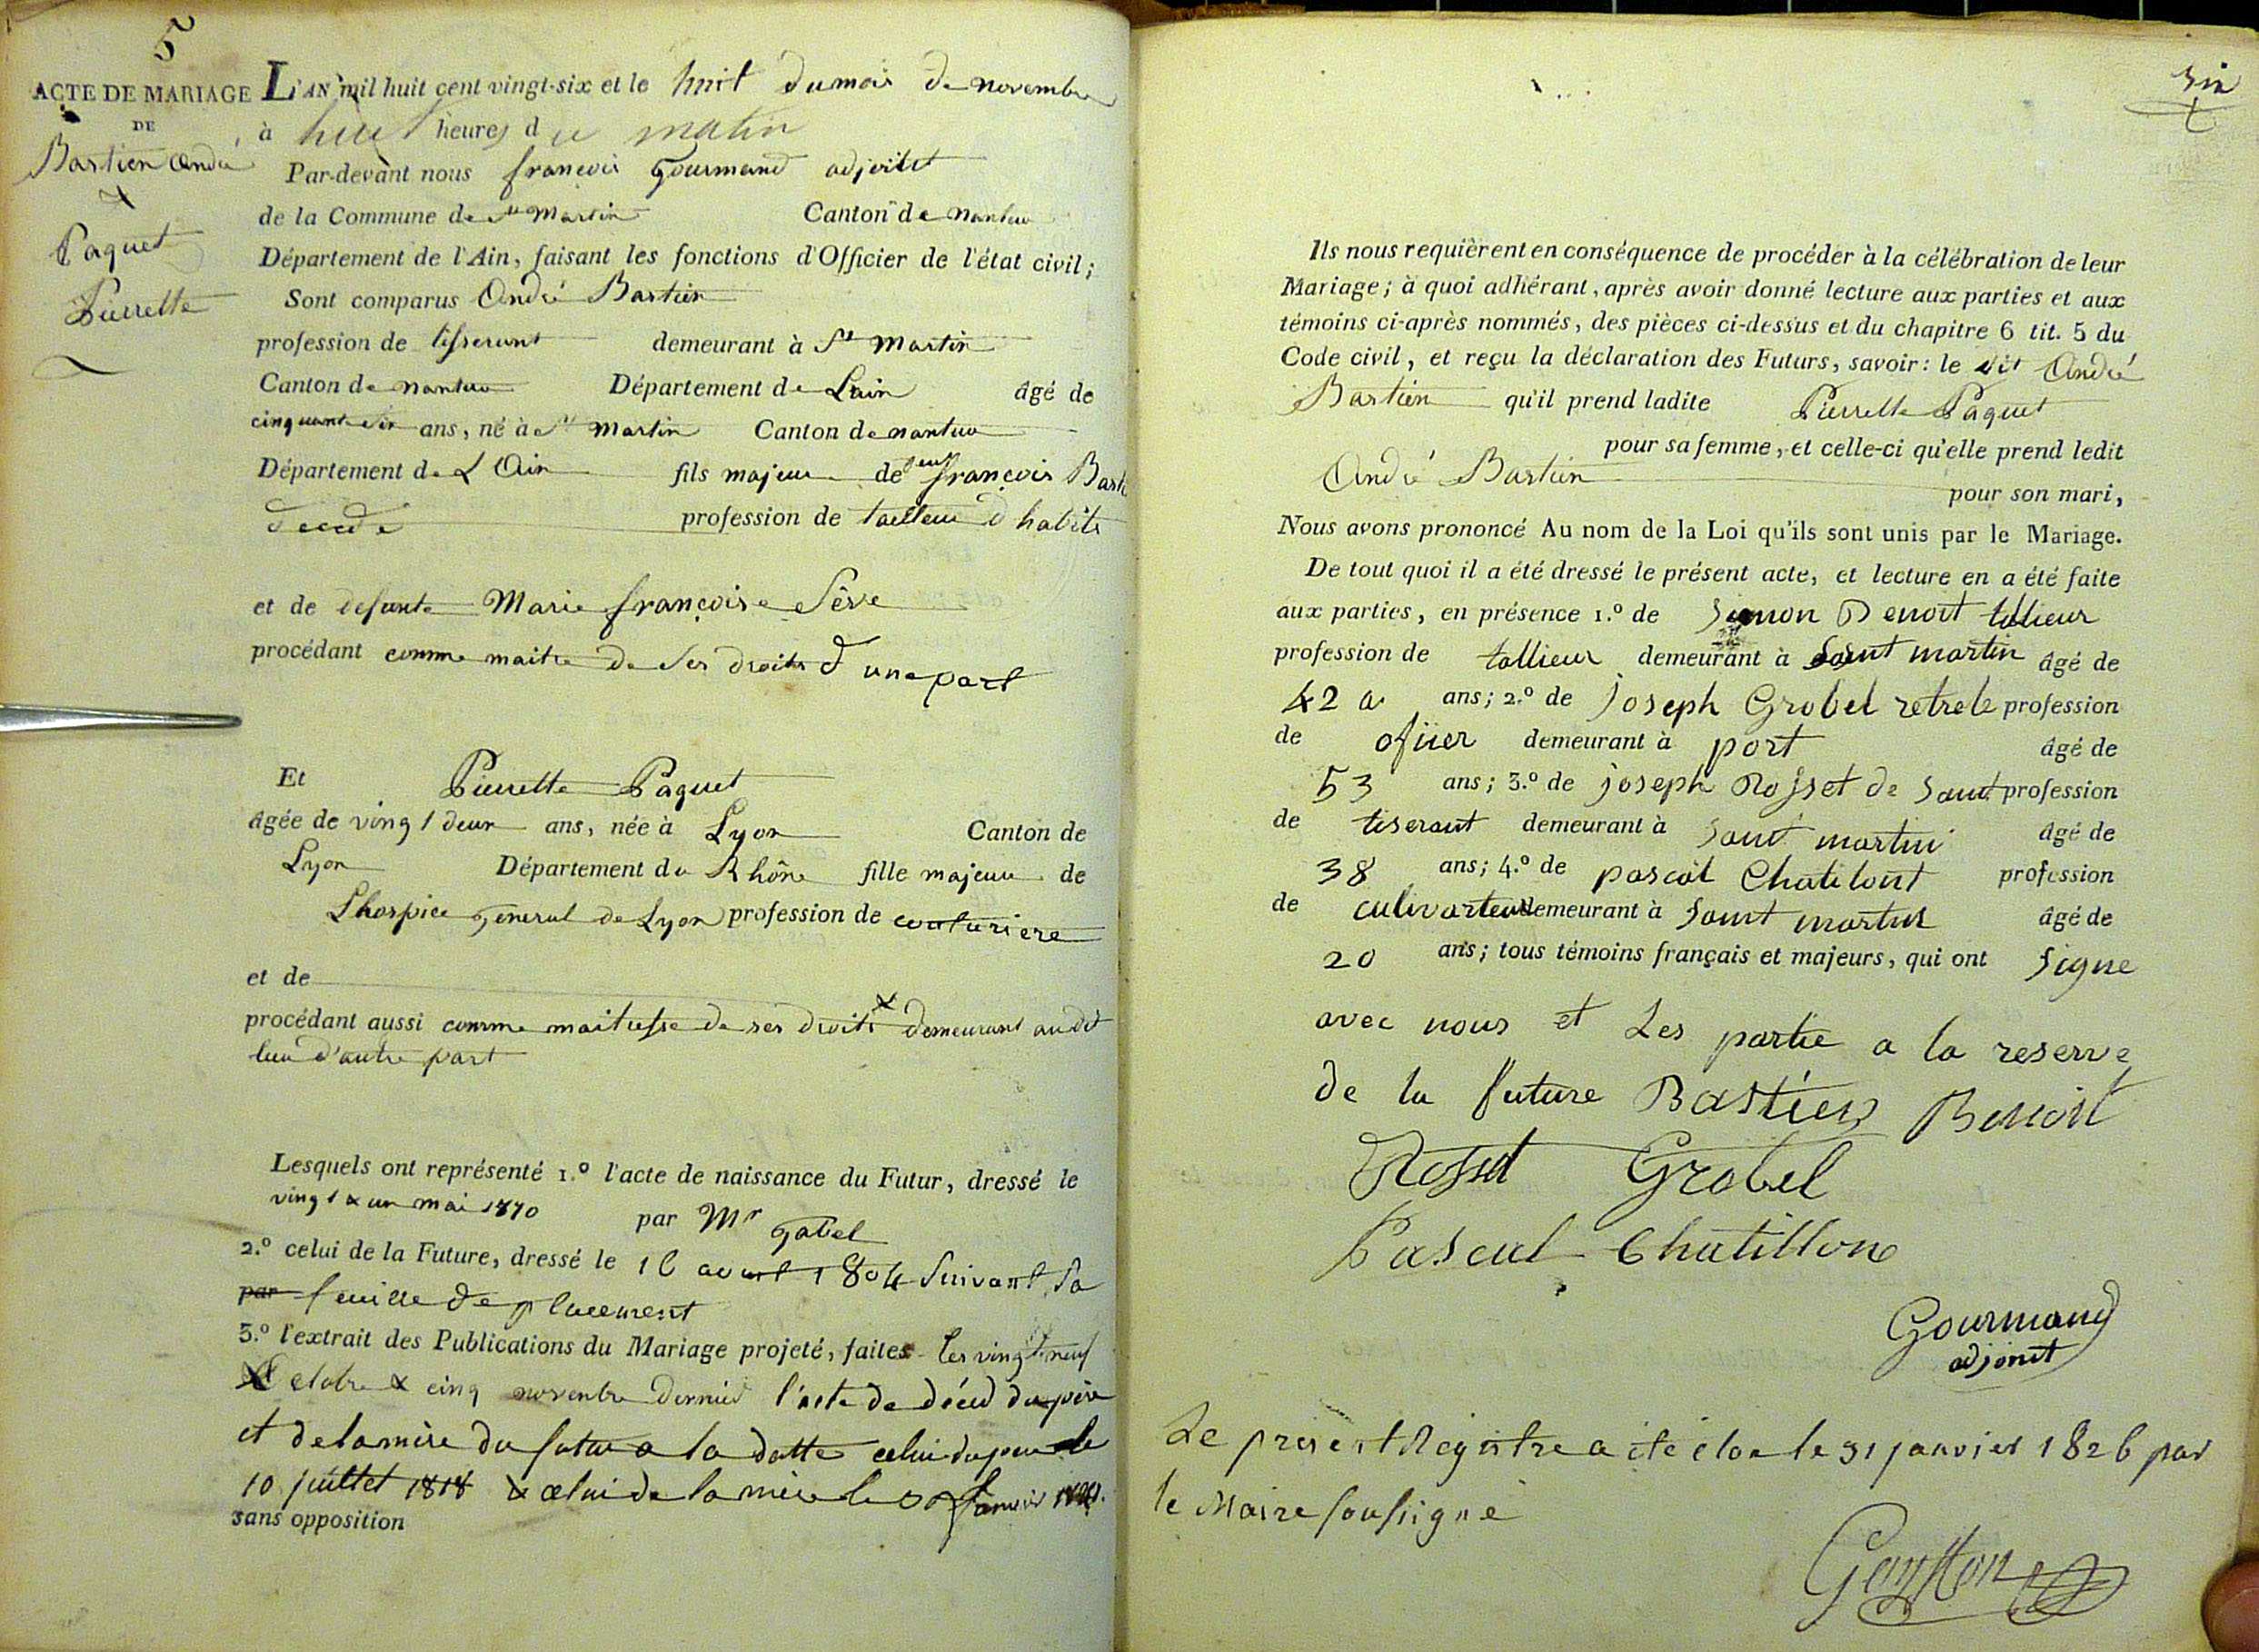 5
ACTE DE MARIAGE
DE
Bastien André
&
Paquet
Pierrette
L'AN mil huit cent vingt-six et le huit du mois de novembre
à huit heures du matin
Par-devant nous françois Gourmand adjoint
de la Commune de St Martin Canton de nantua
Département de l'Ain, faisant les fonctions d'Officier de l'état civil;
Sont comparus André Bastien
profession de tisserant demeurant à St Martin
Canton de nantua Département de Lain âgé de
cinquante six ans, né à St Martin Canton de nantua
Département de L'Ain fils majeur de feu françois Basti
décédé profession de tailleur d'habits
et de defunte Marie françoise Sève
procédant comme maitre de ses droits d'une part
Et Pierrette Paquet
âgée de vingt deux ans, née à Lyon Canton de
Lyon Département du Rhône fille majeure de
Lhospice general de Lyon profession de couturiere
et de
procédant aussi comme maitresse de ses droits & demeurant audit
lieu d'autre part
Lesquels ont représenté 1.º l'acte de naissance du Futur, dressé le
vingt & un mai 1870 par Mr Gabel
2.º celui de la Future, dressé le 16 avril 1804 suivant sa
par feuille de placement
3.º l'extrait des Publications du Mariage projeté, faites les vingt neuf
Octobre & cinq novembre dernier l'acte de décès du père
et de la mère du futur a la datte celui du père le
10 juillet 1818 & celui de la mère le janvier
sans opposition
six
Ils nous requièrent en conséquence de procéder à la célébration de leur
Mariage; à quoi adhérant, après avoir donné lecture aux parties et aux
témoins ci-après nommés, des pièces ci-dessus et du chapitre 6 tit. 5 du
Code civil, et reçu la déclaration des Futurs, savoir: le dit André
Bastien qu'il prend ladite Pierrette Paquet
pour sa femme, et celle-ci qu'elle prend ledit
André Bastien
pour son mari,
Nous avons prononcé Au nom de la Loi qu'ils sont unis par le Mariage.
De tout quoi il a été dressé le présent acte, et lecture en a été faite
aux parties, en présence 1.º de Simon Benoit tallieur
profession de tallieur demeurant à Saint martin âgé de
42 a ans; 2.º de joseph Grobel retrete profession
de ofiier demeurant à port âgé de
53 ans; 3.º de joseph Rosset de Saint profession
de tiserant demeurant à Saint martin âgé de
38 ans; 4.º de pascal Chatilont profession
de culivarteur demeurant à Saint martin âgé de
20 ans; tous témoins français et majeurs, qui ont Signe
avec nous et Les partie a la reserve
de la future Bastien Benoit
Rosset Grobel
Pascal Chatillone
Gourmand
adjoint
Le present Registre a été clos le 31 janvier 1826 par
le Maire soussigné